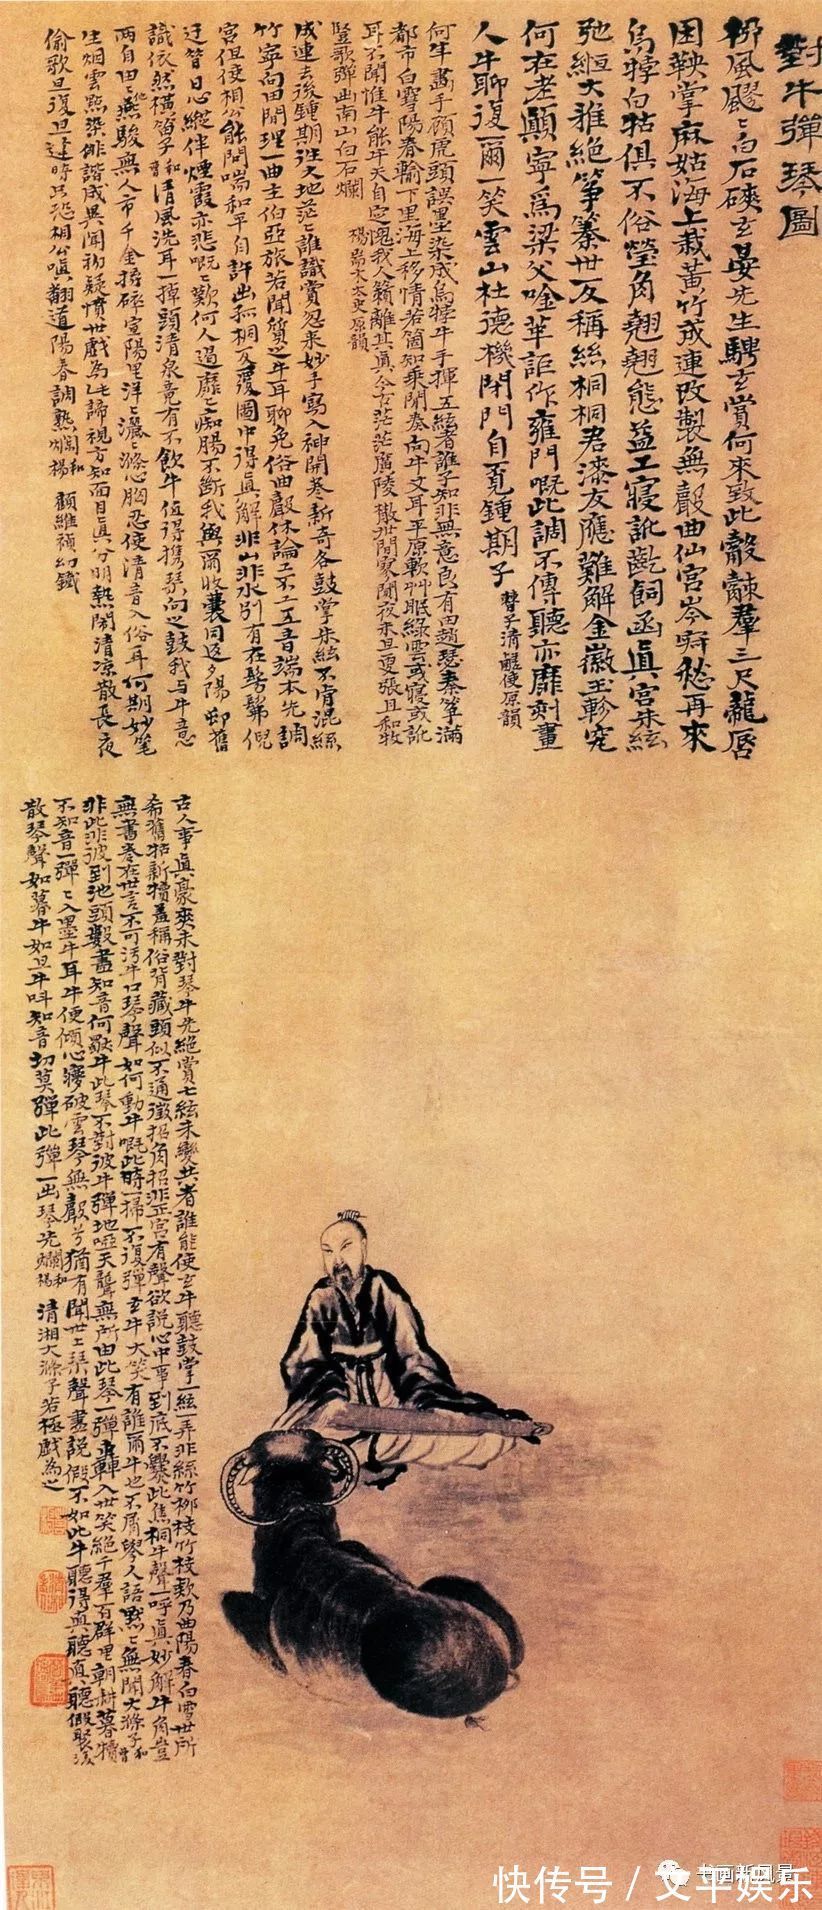 對牛彈琴圖
柳風飂〻白石磢玄晏先生騁玄賞何來致此觳觫羣三尺龍唇
困鞅掌麻姑海上栽黃竹成連改製無聲曲仙宮岑寂愁再來
烏犉白牯俱不俗瑩角翹翹態益工寢訛齝飼函真宮朱絃
弛絙大雅絕箏纂世反稱絲桐桐君漆友應難解金徽玉軫究
何在老顛寧爲梁父唫莘詎作雍門嘅此調不傳聽亦靡刻畫
人牛聊復爾一笑雲山杜德機閉門自覓鍾期子 曹子清鹺使原韻
何年畫手顧虎頭誤墨染成烏牸牛手揮五絃者誰子知非無意良有由趙瑟秦箏滿
都市白雪陽春輸下里海上移情若箇知乘閒奏向牛丈耳平原軟艸眠綠雲或寢或訛
耳不聞惟牛能牛天自定愧我人籟離其真今古茫茫廣陵散世間寥闊夜未旦更張且和牧
豎歌彈出南山白石爛 楊耑木太史原韻
成連去後鍾期往大地茫〻誰識賞忽來妙手寫入神開卷新奇各鼓掌朱絃不肯混絲
竹寧向田間理一曲主伯亞旅若聞質之牛耳聊免俗曲聲休論工不工五音端本先調
宮但使相公能問喘和平自許出孤桐反覆圖中得真解非山非水別有在髣髴倪
迂簪日心縱伴煙霞亦悲嘅〻歎何人過靡〻痴腸不斷我與爾收囊同返夕陽邨舊
識依然橫笛子 和章 清風洗耳一掉頭清泉竟有不飲牛值得携琴向之鼓我与牛意
兩自由〻燕駿無人市千金擣碎宣陽里洋〻灑〻滌心胸忍使清音入俗耳何期妙筆
生烟雲點染俳諧成異聞初疑憤世戲為此諦視方知面目真分明熱鬧清凉散長夜
偷歌旦復旦逢時只恐相公嗔翻道陽春調熟爛 和楊韻 顧維禎幻鐵
古人事真豪爽未對琴牛先絕賞七絃未變共者誰能使玄牛聽鼓掌一絃一弄非絲竹柳枝竹枝欸乃曲陽春白雪世所
希舊牯新犢盖稱俗背藏頭似不通徵招角招非正宮有聲欲說心中事到底不爨此焦桐牛聲一呼真妙解牛角豈
無書卷在世言不可污牛口琴聲如何動牛嘅此時一掃不復彈玄牛大笑有誰爾牛也不屑學人語默〻無聞大滌子 和曹
非此非彼到池頭數盡知音何獨牛此琴不對彼牛彈地啞天聾無所由此琴一彈轟入世笑絕千羣百群里朝耕暮犢
不知音一彈〻入墨牛耳牛便傾心夢破雲琴無聲兮猶有聞世上琴聲盡說假不如此牛聽得真聽真聽假聚後
散琴聲如暮牛如旦牛叫知音切莫彈此彈一出琴先爛 和楊 清湘大滌子若極戲為之
书画新风景
快传号／文平娱乐